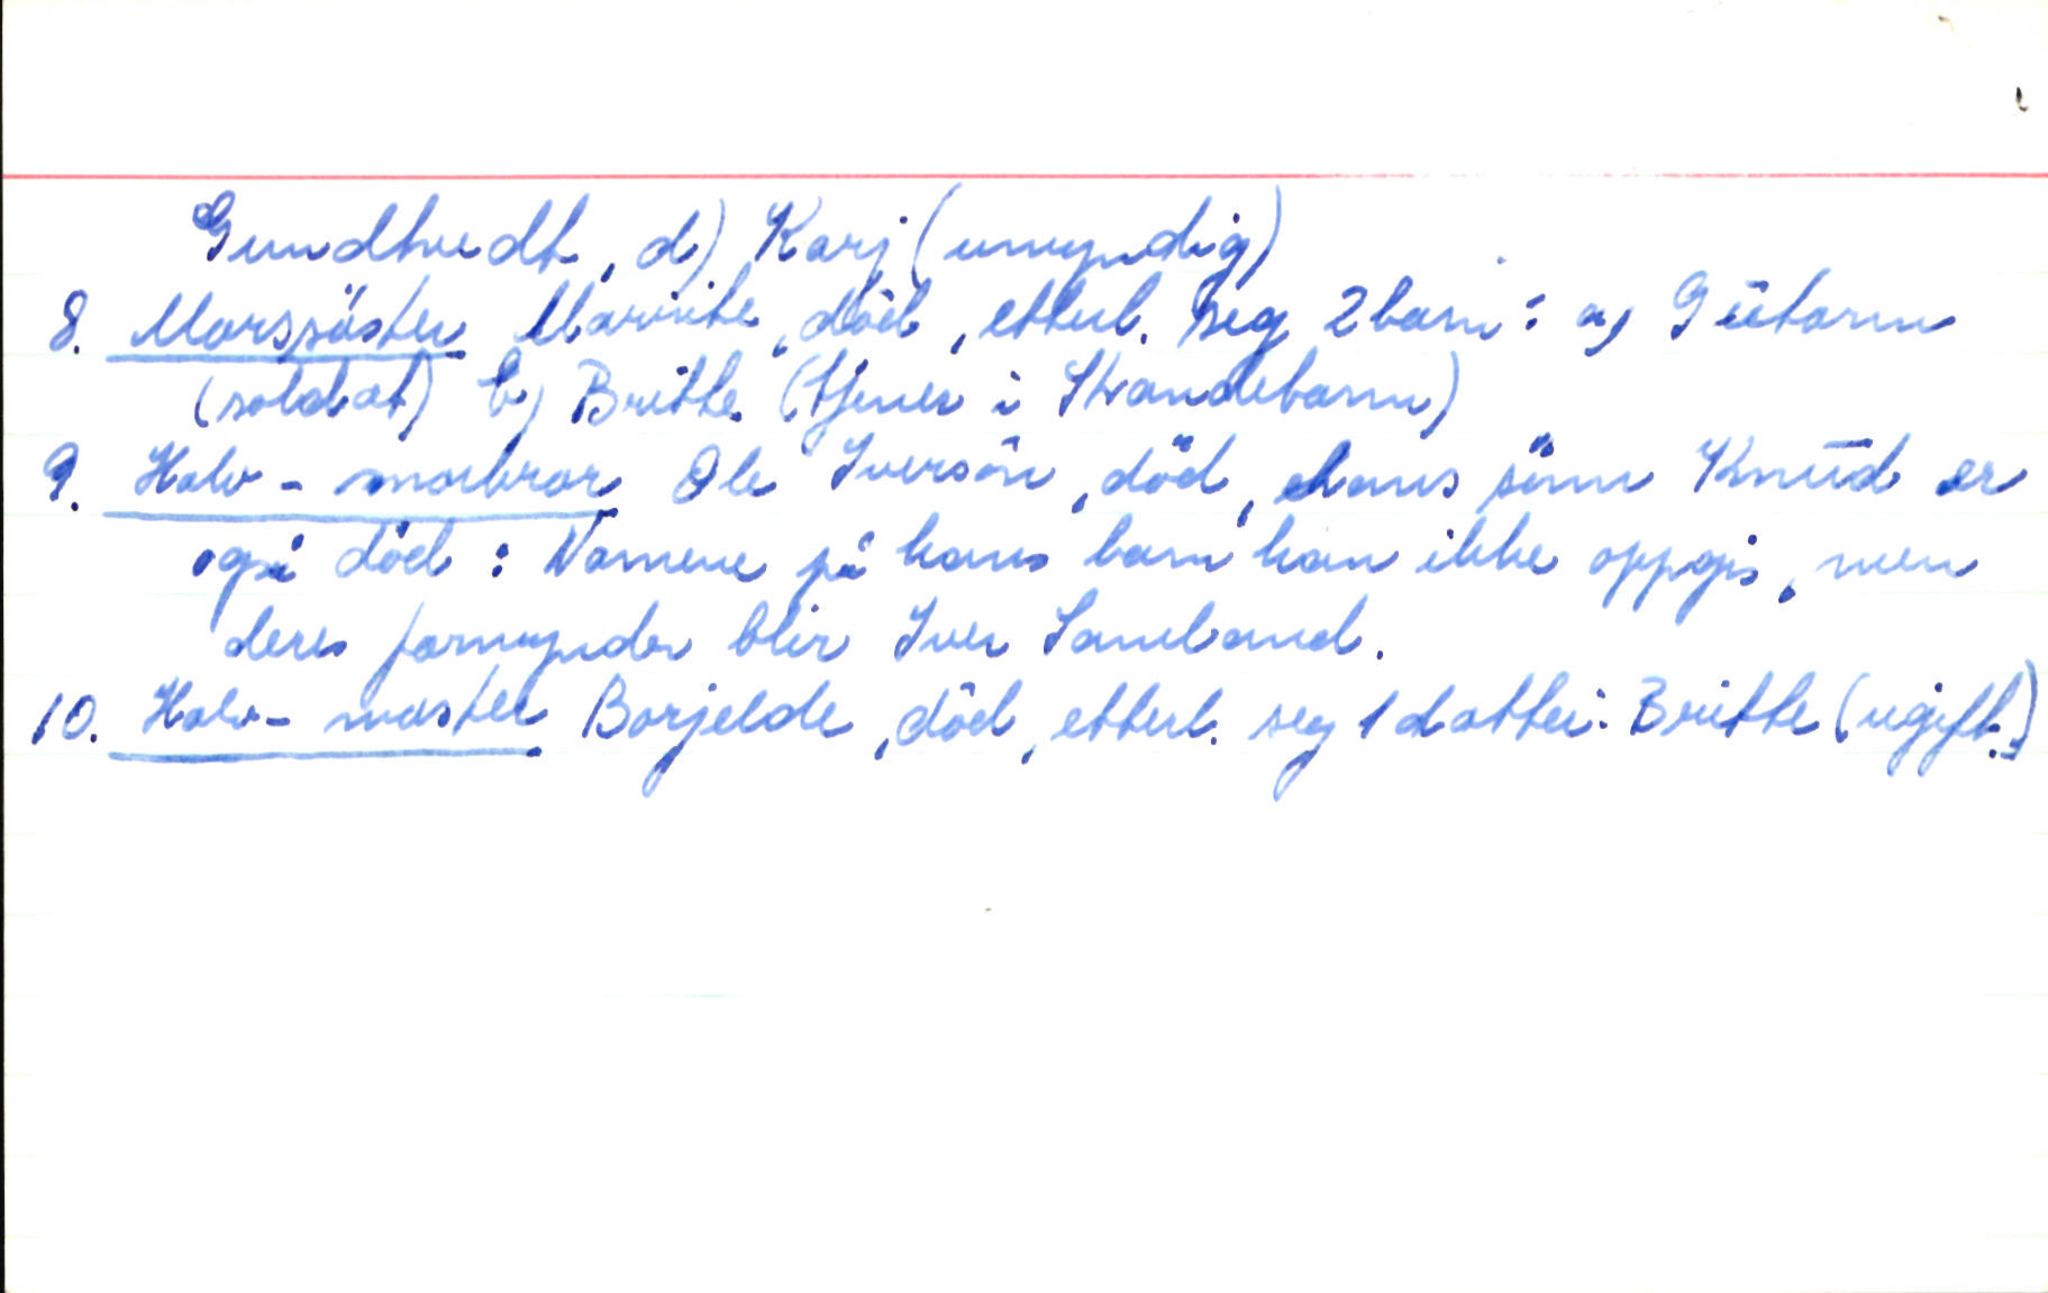 Gundhvedt, d) Karj (umyndig)
8. Morssöster Maritte, död, etterl. seg 2 barn: a) Gütorm
(soldat) b) Britte (tjener i Strandebarm)
9. Halv-morbror Ole Iversön, död, hans sönn Knūd er
også död: Namene på hans barn kan ikke oppgis, men
deres formynder blir Iver Samland.
10. Halv-moster Borjelde, död, etterl. seg 1 dotter: Britte (ugift.)